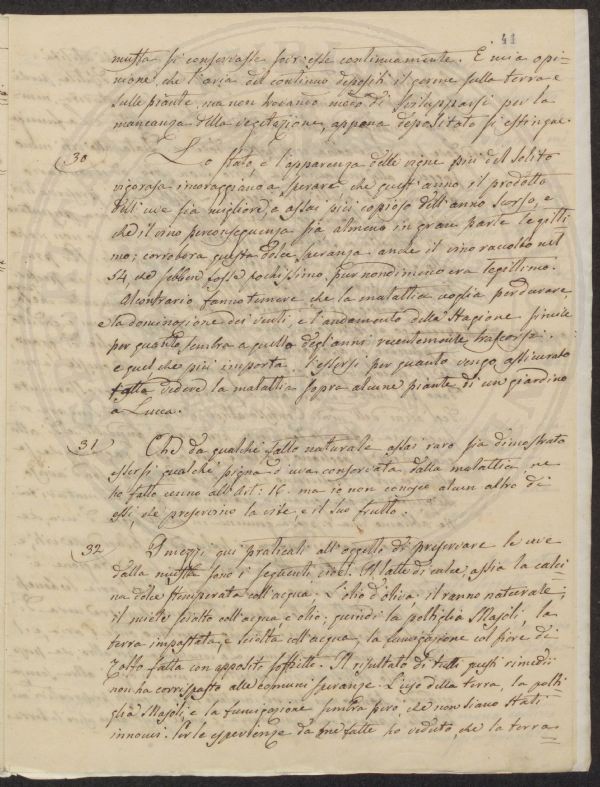 41
muffa si conservasse soir esse continuamente. E mia opi=
nione, che l'aria del continuo depositi il germe sulla terra e
sulle piante, ma non trovando modo di svilupparsi per la
mancanza della vegetazione, appena depositato si estingue.
30 Lo stato, e l'apparenza delle vigne più del solito
vigorosa incoraggiano a sperare che quest'anno il prodotto
dell'uve sia migliore, e assai più copioso dell'anno scorso, e
che il vino per conseguenza sia almeno in gran parte legitti=
mo; corrobora questa dolce speranza anche il vino raccolto nel
54 che sebben fosse pochissimo, pur nondimeno era legittimo.
Al contrario fanno temere che la malattia voglia perdurare,
e la dominazione dei venti, e l'andamento della stagione simile
per quanto sembra a quello degli anni recentemente trascorsi.
e quel che più importa l'essersi per quanto vengo assicurato
fatta vedere la malattia sopra alcune piante di un giardino
a Lucca.
31 Che da qualche fatto naturale assai raro sia dimostrato
essersi qualche pigna d'uva conservata dalla malattia, ne
ho fatto cenno all'Art: 16. ma io non conosco alcun altro di
essi, che preservino la vite, e il suo frutto.
32 I mezzi qui praticati all'oggetto di preservare le uve
dalla muffa sono i seguenti, cioè. Il latte di calce, ossia la calci=
na dolce stemperata coll'acqua; L'olio d'oliva; il ranno naturale;
il miele sciolto coll'acqua, e olio; quindi la poltiglia Majoli, la
terra impastata, e sciolta coll'acqua, la fumigazione col fiore di
Zolfo fatta con apposito soffietto. Il risultato di tutti questi rimedii
non ha corrisposto alle comuni speranze. L'uso della terra, la polti=
glia Majoli, e la fumigazione sembra però, che non siano stati
innocui. Per le esperienze da me fatte ho veduto, che la terra=